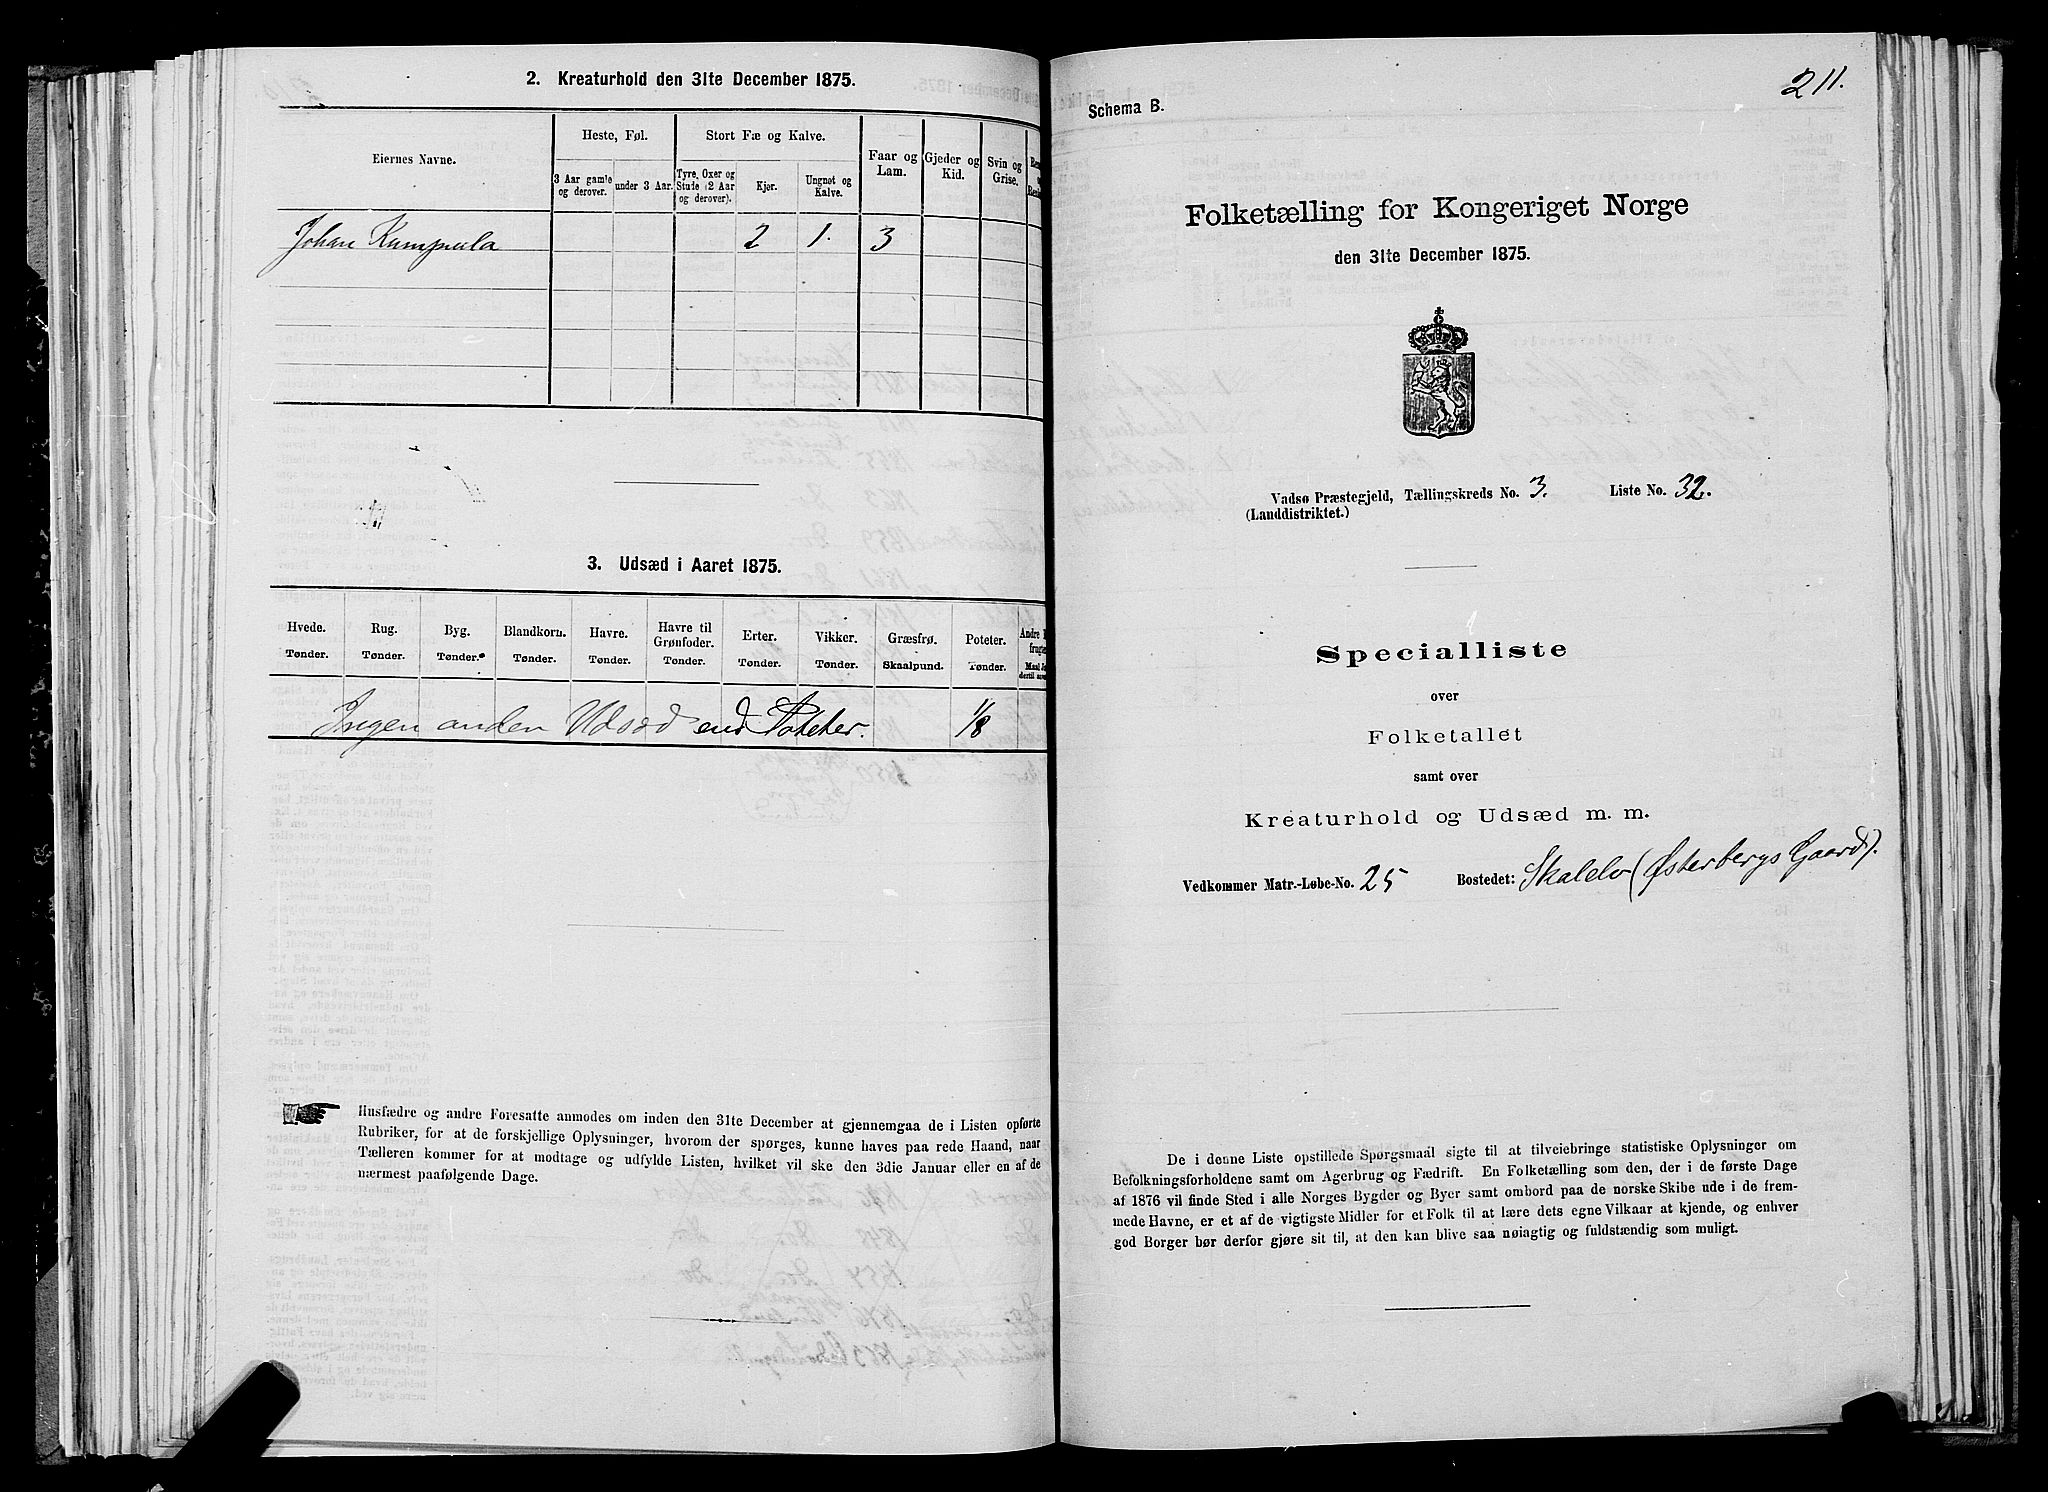 2. Kreaturhold den 31te December 1875.
Eiernes Navne.
Heste, Føl.
Stort Fæ og Kalve.
Faar og
Lam.
Gjeder og
Kid.
Svin og
Grise.
3 Aar gamle
og derover.
under 3 Aar.
Tyre, Oxer og
Stude (2 Aar
og derover).
Kjør.
Ungnøt og
Kalve.
Johan Kumpula 2 1. 3
3. Udsæd i Aaret 1875.
Hvede.
Tønder.
Rug.
Tønder.
Byg.
Tønder.
Blandkorn.
Tønder.
Havre.
Tønder.
Havre til
Grønfoder.
Tønder.
Erter.
Tønder.
Vikker.
Tønder.
Græsfrø.
Skaalpund.
Poteter.
Tønder.
Ingen anden Udsæd end Poteter. 1/8
Husfædre og andre Foresatte anmodes om inden den 31te December at gjennemgaa de i Listen opførte
Rubriker, for at de forskjellige Oplysninger, hvorom der spørges, kunne haves paa rede Haand, naar
Tælleren kommer for at modtage og udfylde Listen, hvilket vil ske den 3die Januar eller en af de
nærmest paafølgende Dage.
211.
Schema B.
Folketælling for Kongeriget Norge
den 31te December 1875.
Vadsø Præstegjeld, Tællingskreds No. 3. Liste No. 32.
(Landdistriktet.)
Specialliste
over
Folketallet
samt over
Kreaturhold og Udsæd m. m.
Vedkommer Matr.-Løbe-No. 25 Bostedet: Skalelv (Østerbergs Gaard).
De i denne Liste opstillede Spørgsmaal sigte til at tilveiebringe statistiske Oplysninger om
Befolkningsforholdene samt om Agerbrug og Fædrift. En Folketælling som den, der i de første Dage
af 1876 vil finde Sted i alle Norges Bygder og Byer samt ombord paa de norske Skibe ude i de frem-
mede Havne, er et af de vigtigste Midler for et Folk til at lære dets egne Vilkaar at kjende, og enhver
god Borger bør derfor gjøre sit til, at den kan blive saa nøiagtig og fuldstændig som muligt.